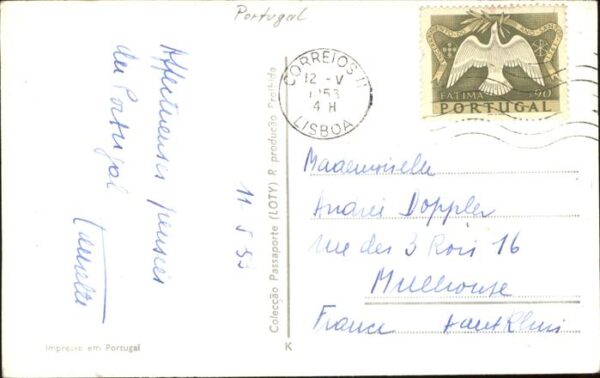 Portugal
Affectueuses pensées
du Portugal
11 5 53
Impresso em Portugal
Colecção Passaporte (LOTY) R produção Proibida
K
CORREIOS 11
12 - V
1953
4 H
LISBOA
FATIMA
$90
PORTUGAL
Mademoiselle
Andrée Doppler
rue des 3 Rois 16
Mulhouse
France Haut Rhin